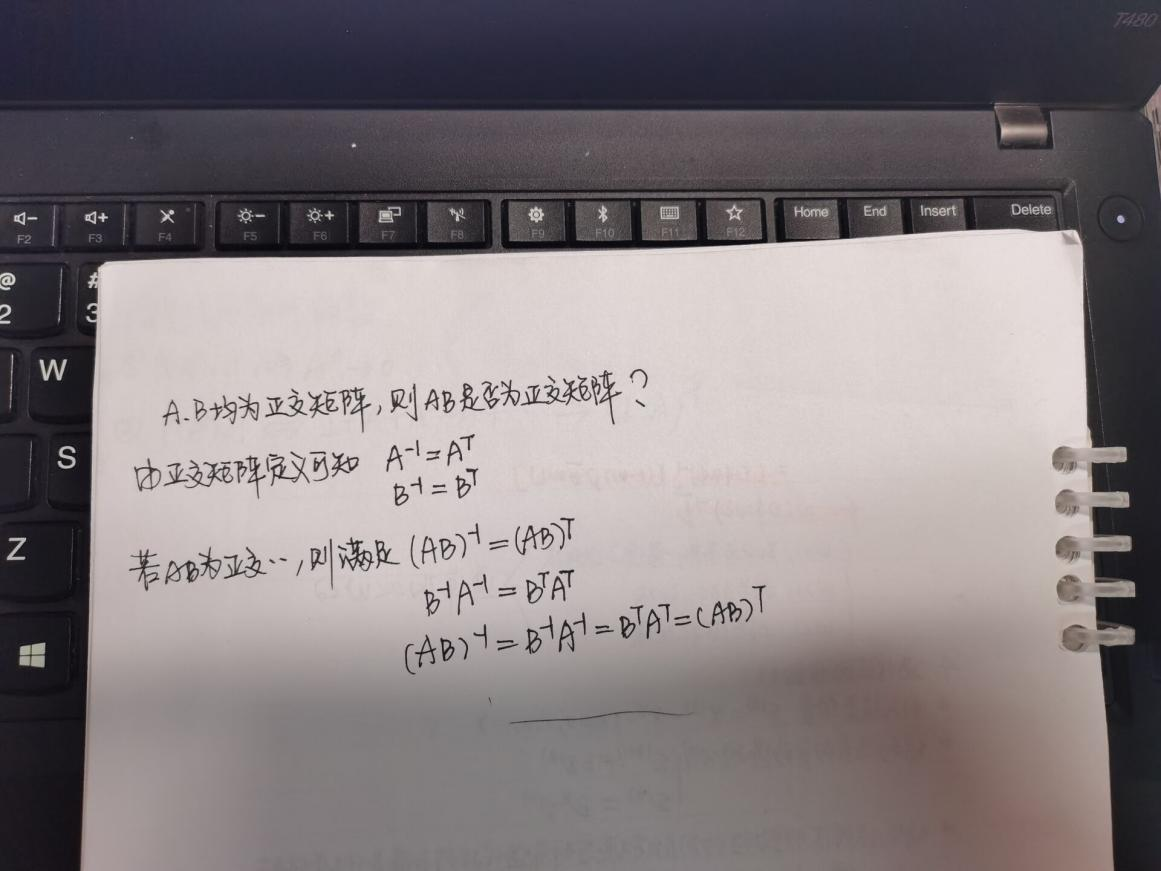 T480
F2
F3
F4
F5
F6
F7
F8
F9
F10
F11
F12
Home
End
Insert
Delete
@
2
#
3
W
S
Z
A、B均为正交矩阵,则AB是否为正交矩阵?
由正交矩阵定义可知 A⁻¹=Aᵀ
B⁻¹=Bᵀ
若AB为正交‥,则满足 (AB)⁻¹=(AB)ᵀ
B⁻¹A⁻¹=BᵀAᵀ
(AB)⁻¹=B⁻¹A⁻¹=BᵀAᵀ=(AB)ᵀ